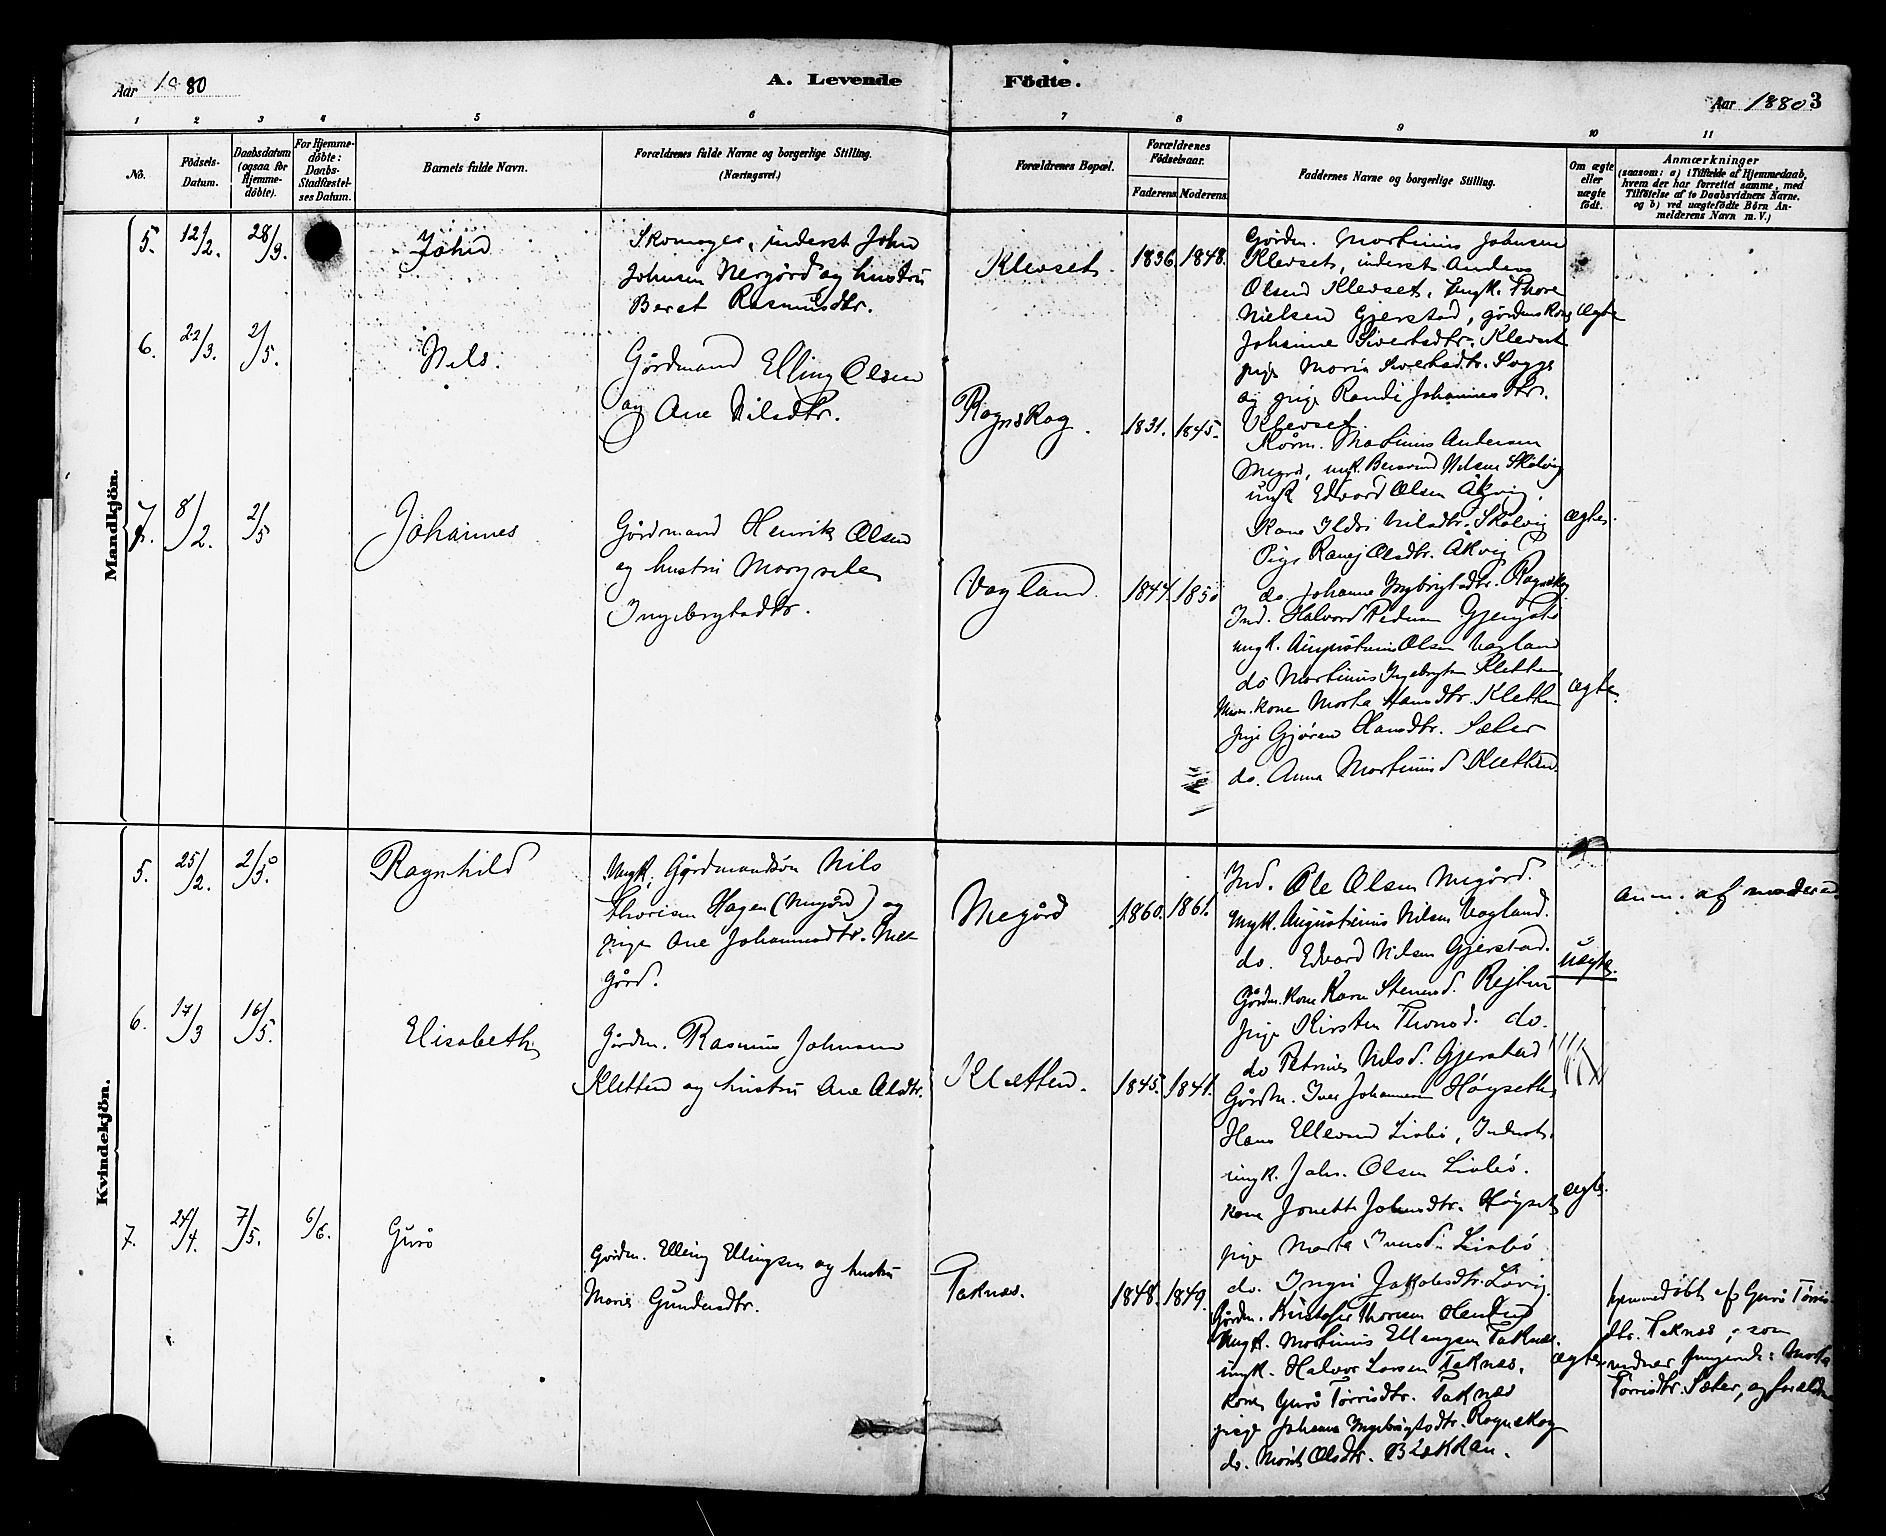 Aar 1880
A. Levende
Födte.
Aar 1880 3
1 2 3 4 5 6 7 8 9 10 11
No.
Födsels-Datum.
Daabsdatum (ogsaa for Hjemme-döbte).
For Hjemme-döbte: Daabs-Stadfæstel-ses Datum.
Barnets fulde Navn.
Forældrenes fulde Navne og borgerlige Stilling.
(Næringsvei.)
Forældrenes Bopæl.
Forældrenes Födselsaar.
Faderens
Moderens.
Faddernes Navne og borgerlige Stilling.
Om ægte eller uægte födt.
Anmærkninger
(saasom: a) i Tilfælde af Hjemmedaab,
hvem der har forrettet samme, med
Tilföielse af to Daabsvidners Navne.
og b) ved uægtefödte Börn An-
melderens Navn m. V.)
Mandkjön.
5. 12/2. 28/3. John
Skomager, inderst John
Johnsen Nergård og hustru
Beret Rasmusdtr.
Klevset. 1836 1848.
Gårdm. Martinus Johnsen
Klevset, inderst Anders
Olsen Klevset, Ungk. Thore
Nielsen Gjerstad, gårdm.kone
Johanne Sivertsdtr. Klevset
pige Marit Sivertsdtr. Sogge
og pige Randi Johannesdtr.
Klevset.
ægte
6. 22/3. 2/5. Nils.
Gårdmand Elling Olsen
og Ane Nilsdtr.
Rognskog. 1831. 1845.
Martinus Andersen
Megård, ungk. Nilsen Skålvig
ungk Edvard Olsen Åkvig.
Kone Ildri Nilsdtr. Skålvig
Pige Olsdtr. Åkvig
do Johanne Ingebrigtsdtr. Rognskog
ægte.
7. 8/2. 2/5 Johannes
Gårdmand Henrik Olsen
og hustru
Ingebrigtsdtr.
Vagland. 1844. 1850
Ind. Halvard Pedersen
ungk. Augustinus Olsen Vagland
do Martinus Ingebrigtsen Kletten
kone Marta Hansdtr. Kletten
pige Gjøren Hansdtr. Sæter
do. Anna Martinusd. Kletten.
ægte.
Kvindekjön.
5. 25/2. 2/5. Ragnhild
Ungk. Gårdmandsøn Nils
Thoresen Hagen (Megård) og
pige Ane Johannesdtr. Me-
gård.
Megård 1860. 1861.
Ind. Ole Olsen Megård.
Ungk. Augustinus Nilsen Vagland.
do. Edvard Nilsen Gjerstad.
Gårdm. kone Karen Rejten
pige Kirsten do.
do Petrine Nilsd. Gjerstad
uægte.
anm. af moderen.
6. 17/3 16/5. Elisabeth
Gårdm. Rasmus Johnsen
Kletten og hustru Ane Olsdtr.
Kletten. 1845. 1841.
Gårdm. Iver Johannesen Høyseth
Hans Ellevsen Lisbø, Inderst.
ungk. Johs. Olsen Lisbø.
kone Jonetta Johnsdtr. Høyset
pige Marta Lisbø
do. Ingri Jakobsdtr.
ægte.
7. 24/4. 7/5. 6/6. Guro
Gårdm. Elling Ellingsen og hustru
Marit Gundersdtr.
Taknæs. 1848. 1849.
Gårdm. Kristofer Thoresen
Ungk. Martinus Ellingsen Taknæs.
ungk. Halvor Larsen Taknæs.
kone Guro Torrisdtr. Taknæs
pige Johanna Ingebrigtsdtr. Rognskog
do. Marit Olsdtr. Bækken.
ægte.
hjemmedøbt af Guro Torris-
dtr. Taknæs; som
vidner fungerede: Marta
Torrisdtr. Sæter, og